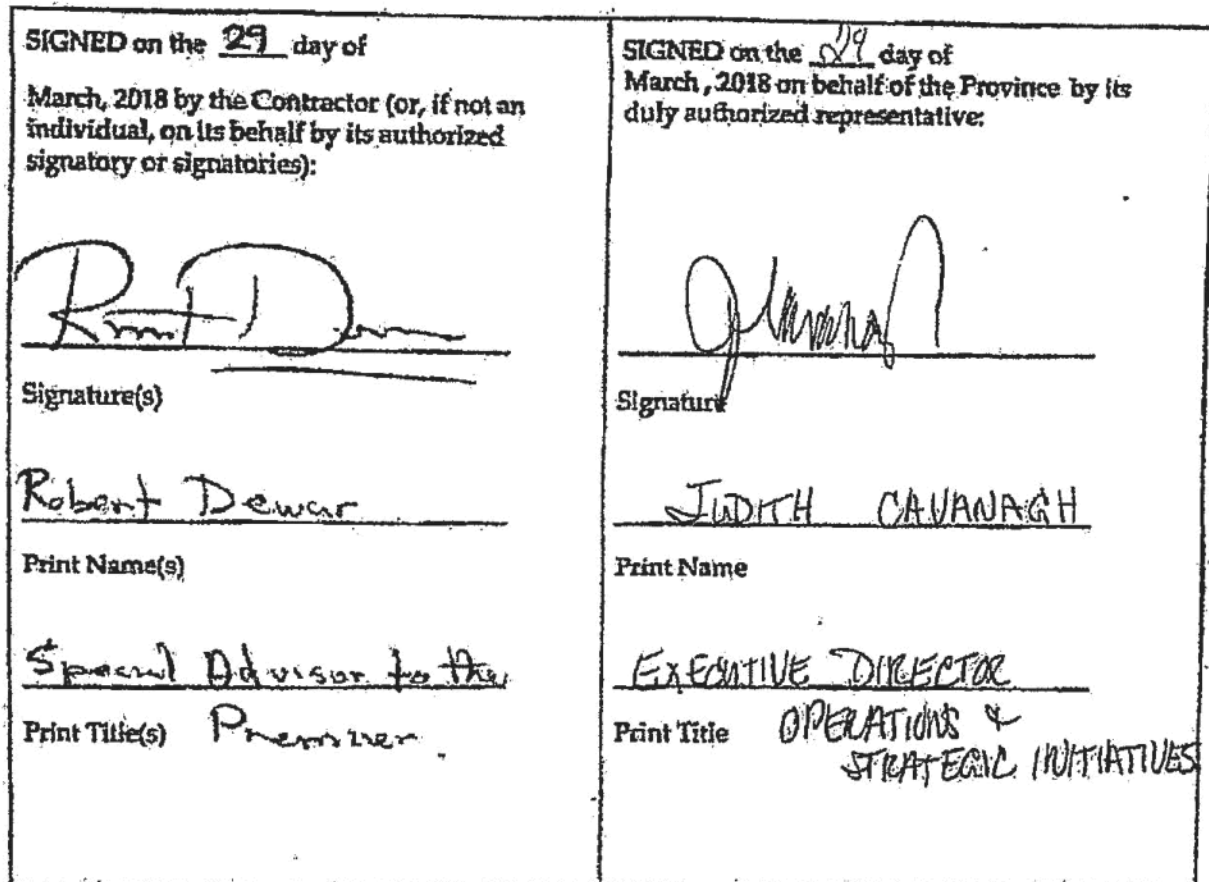 SIGNED on the 29 day of
March, 2018 by the Contractor (or, if not an
individual, on its behalf by its authorized
signatory or signatories):
Signature(s)
Robert Dewar
Print Name(s)
Special Advisor to the
Print Title(s) Premier.
SIGNED on the 29 day of
March, 2018 on behalf of the Province by its
duly authorized representative:
Signature
JUDITH CAVANAGH
Print Name
EXECUTIVE DIRECTOR
Print Title OPERATIONS &
STRATEGIC INITIATIVES